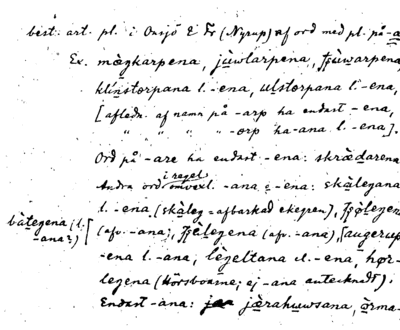 best. art. pl. i Onsjö E Fr (Nyrup) af ord med pl. på -a
Ex. mægkarpena, jùwlarpena,
klinstorpana l. -ena, ulstorpana l. -ena,
[afledn. af namn på -arp ha endast -ena,
" " " " -orp ha -ana l. -ena].
Ord på -are ha endast -ena: skrædarena
i regel
Andra ord omvexl. -ana o -ena: skålegana
l. -ena (skåleg = afbarkad ekegren),
bàtegena (l.
-ana?) [ (äfv. -ana), (äfv. -ana), taugerup
-ena l. -ana, lègeltana l. -ena, hør-
legena (Hörsboarne; ej -ana antecknadt).
Endast -ana: jærahuwsana, òrma-